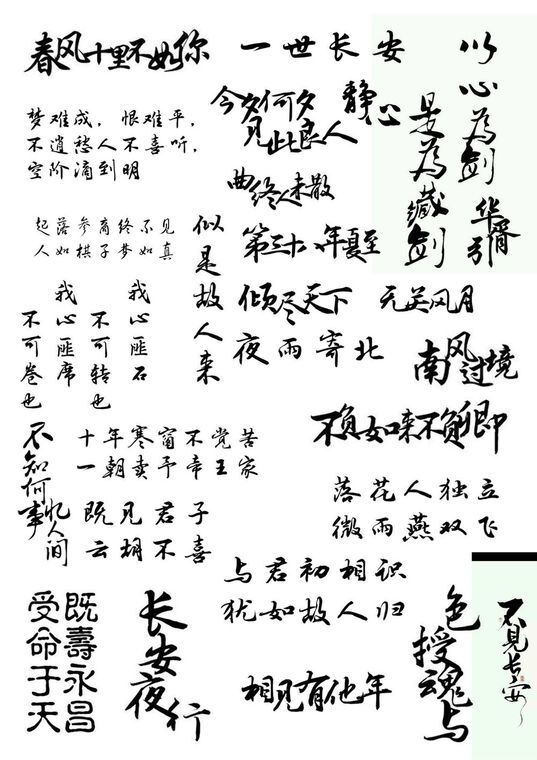 春风十里不如你
一世长安
以心为剑
是为藏剑
华胥引
今夕何夕
见此良人
静心
梦难成，恨难平，
不道愁人不喜听，
空阶滴到明
曲终人未散
起落参商终不见
人如棋子梦如真
似是故人来
第三十八年夏至
我心匪石
不可转也
我心匪席
不可卷也
倾尽天下
无关风月
夜雨寄北
南风过境
不负如来不负卿
不知何事
忆人间
十年寒窗不觉苦
一朝卖予帝王家
既见君子
云胡不喜
落花人独立
微雨燕双飞
与君初相识
犹如故人归
受命于天
既壽永昌
长安夜行
相见有他年
色授魂与
不见长安